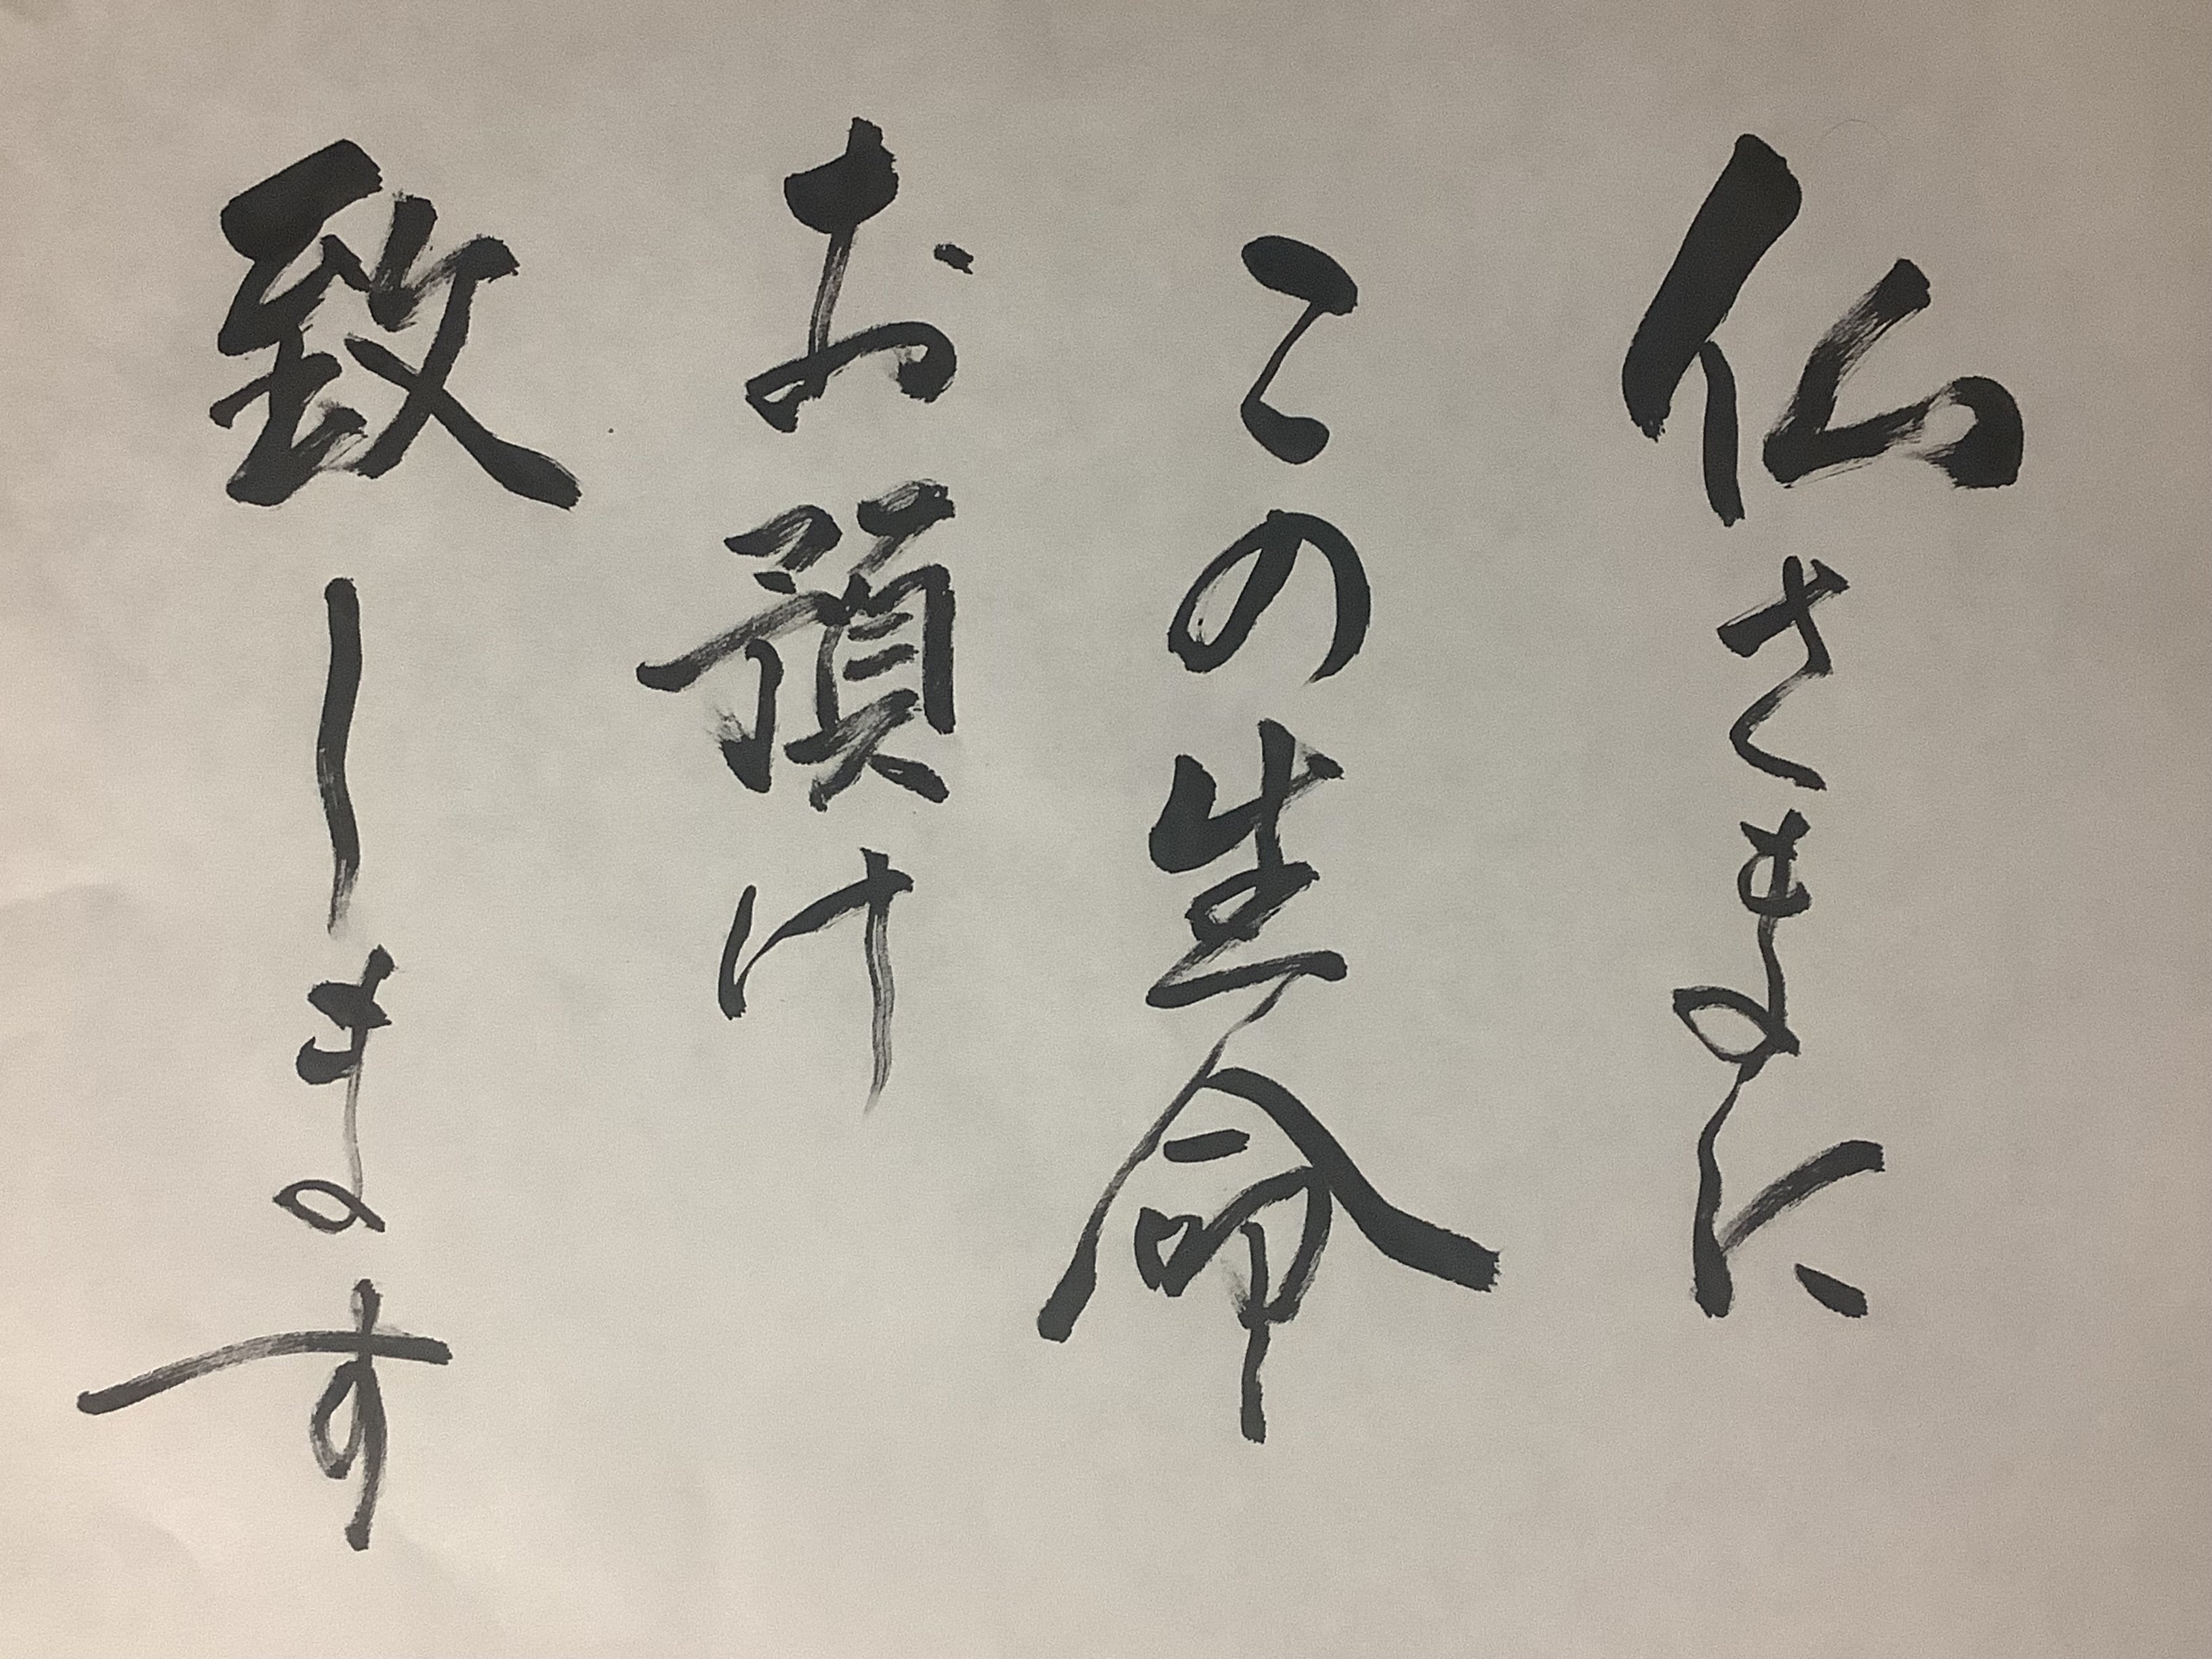 仏さまに
この生命
お預け
致します